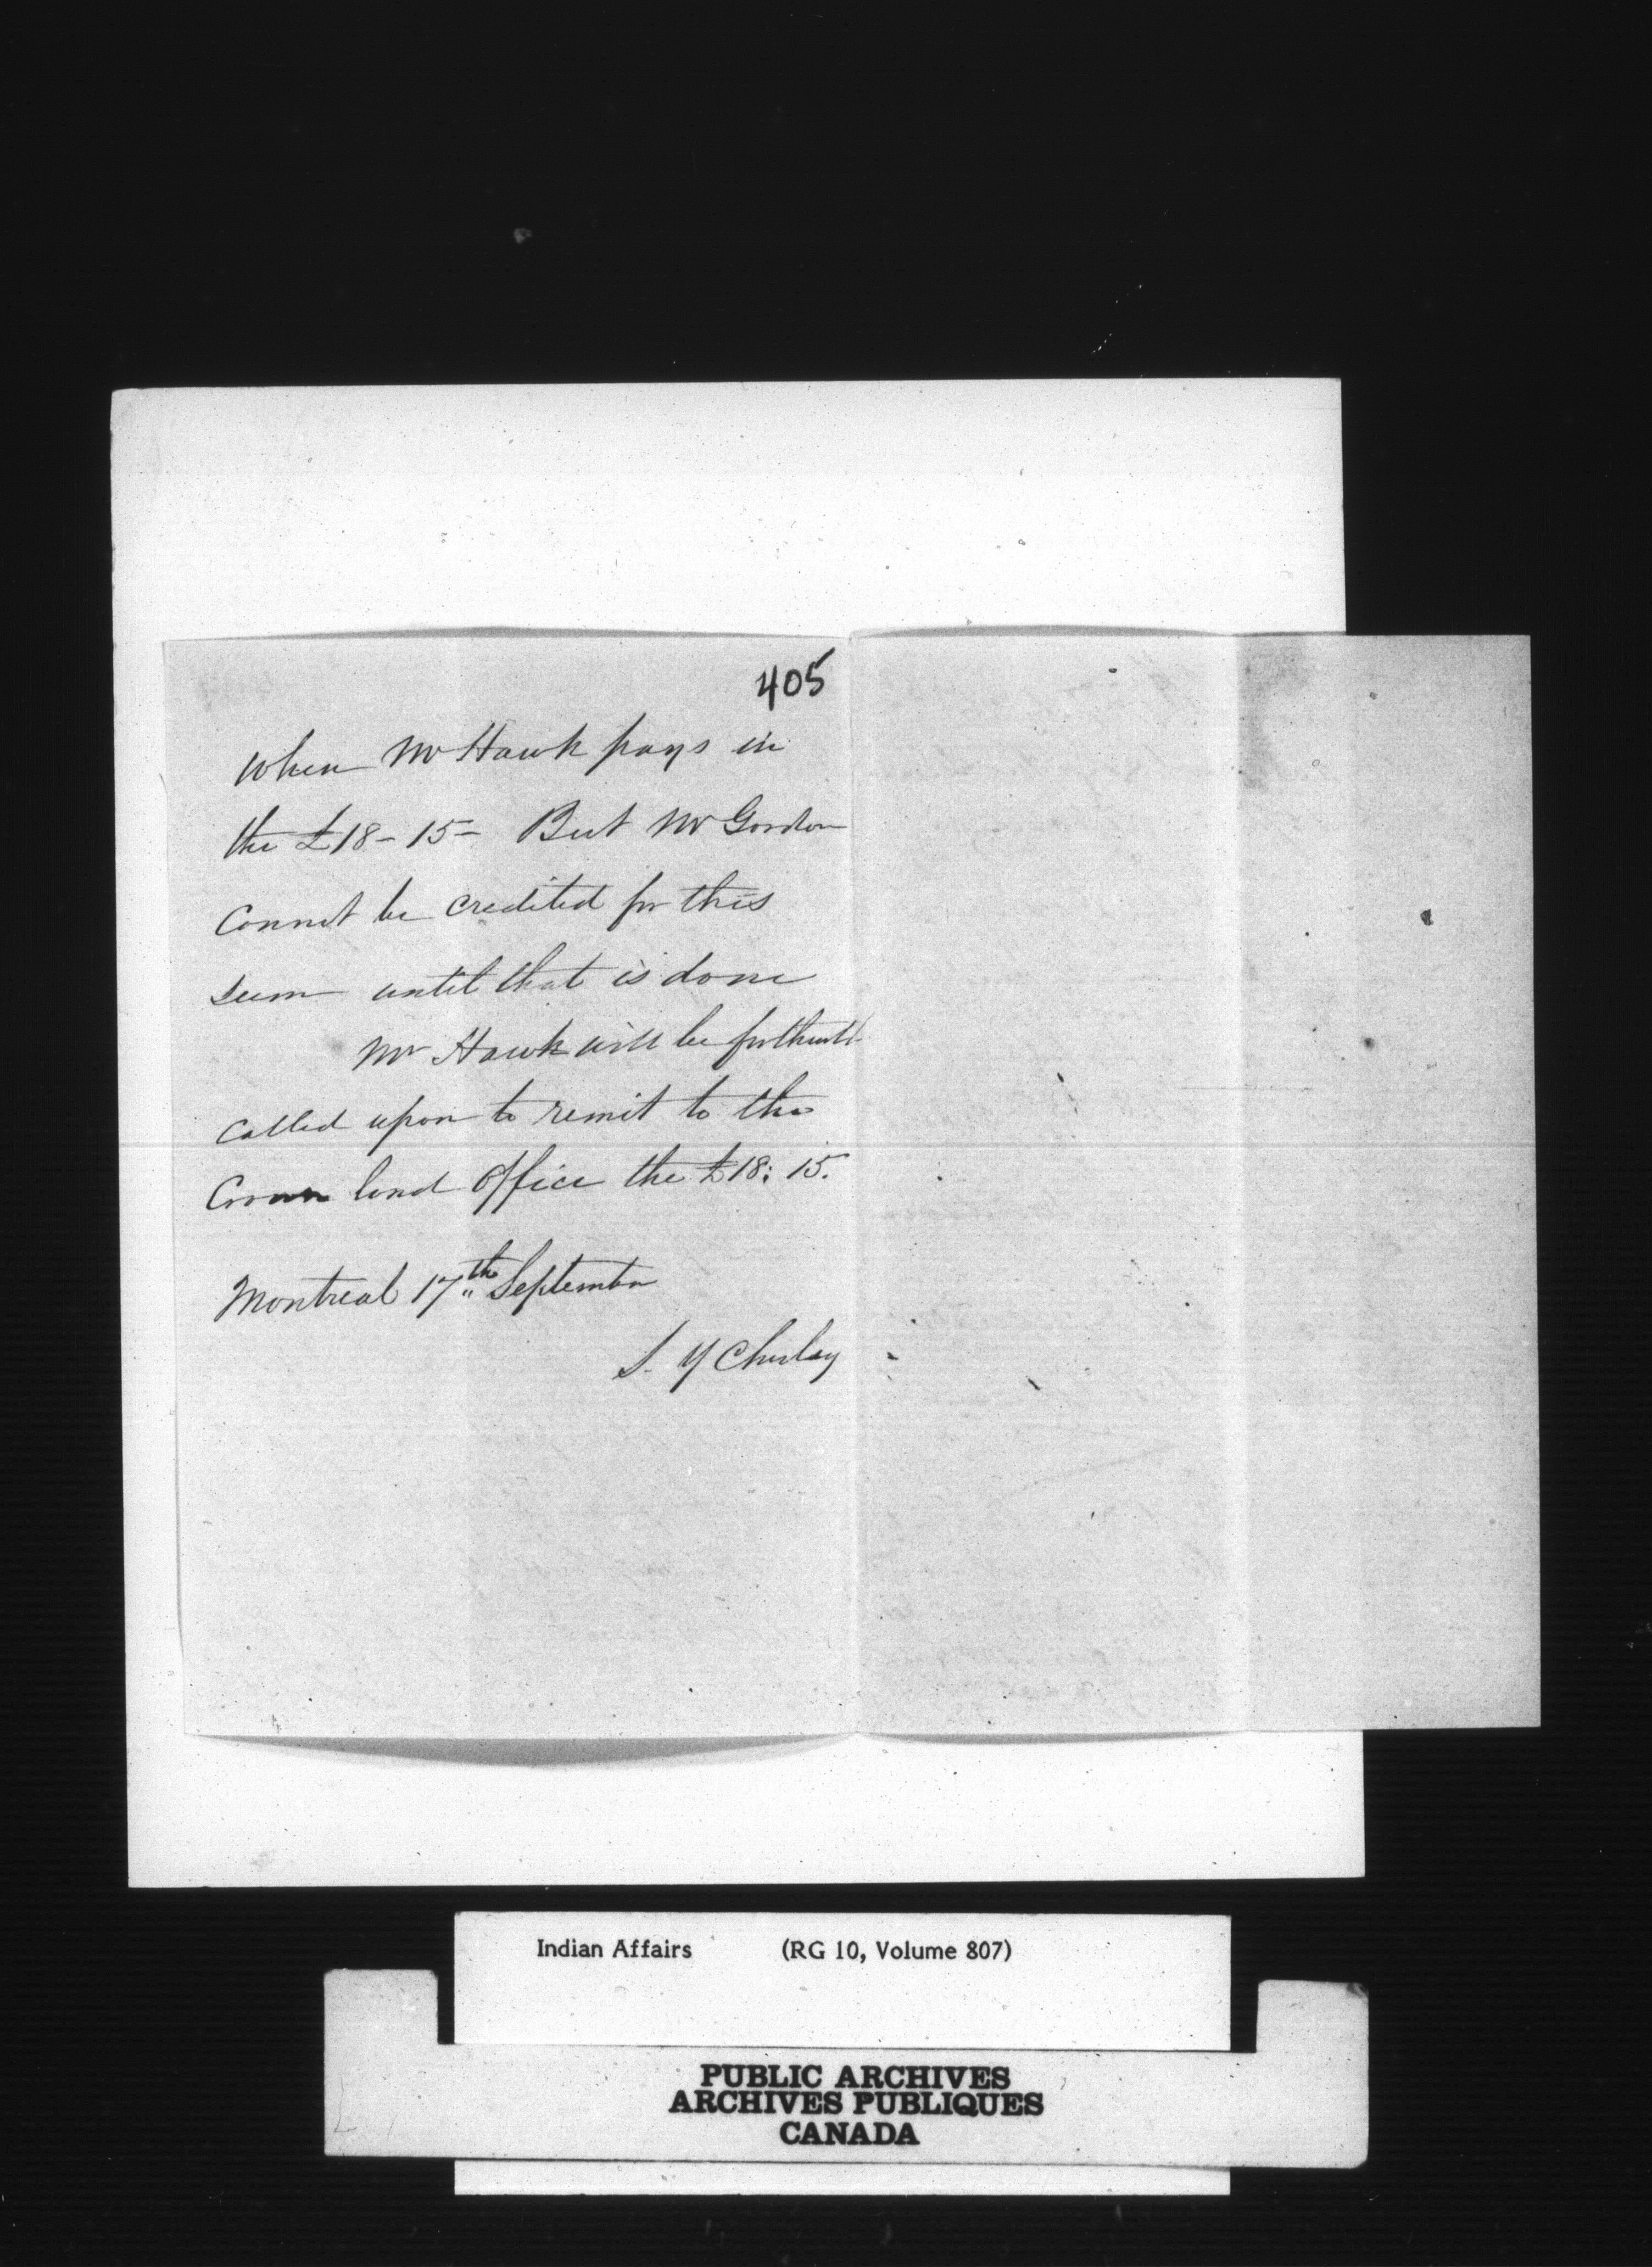 405
when Mr Hawk pays in
the £18-15- But Mr Gordon
Cannot be credited for this
sum until that is done
Mr Hawk will be forthwith
called upon to remit to the
Crown land Office the £18:15.
Montreal 17th September
S. Y Chesley
Indian Affairs (RG 10, Volume 807)
PUBLIC ARCHIVES
ARCHIVES PUBLIQUES
CANADA